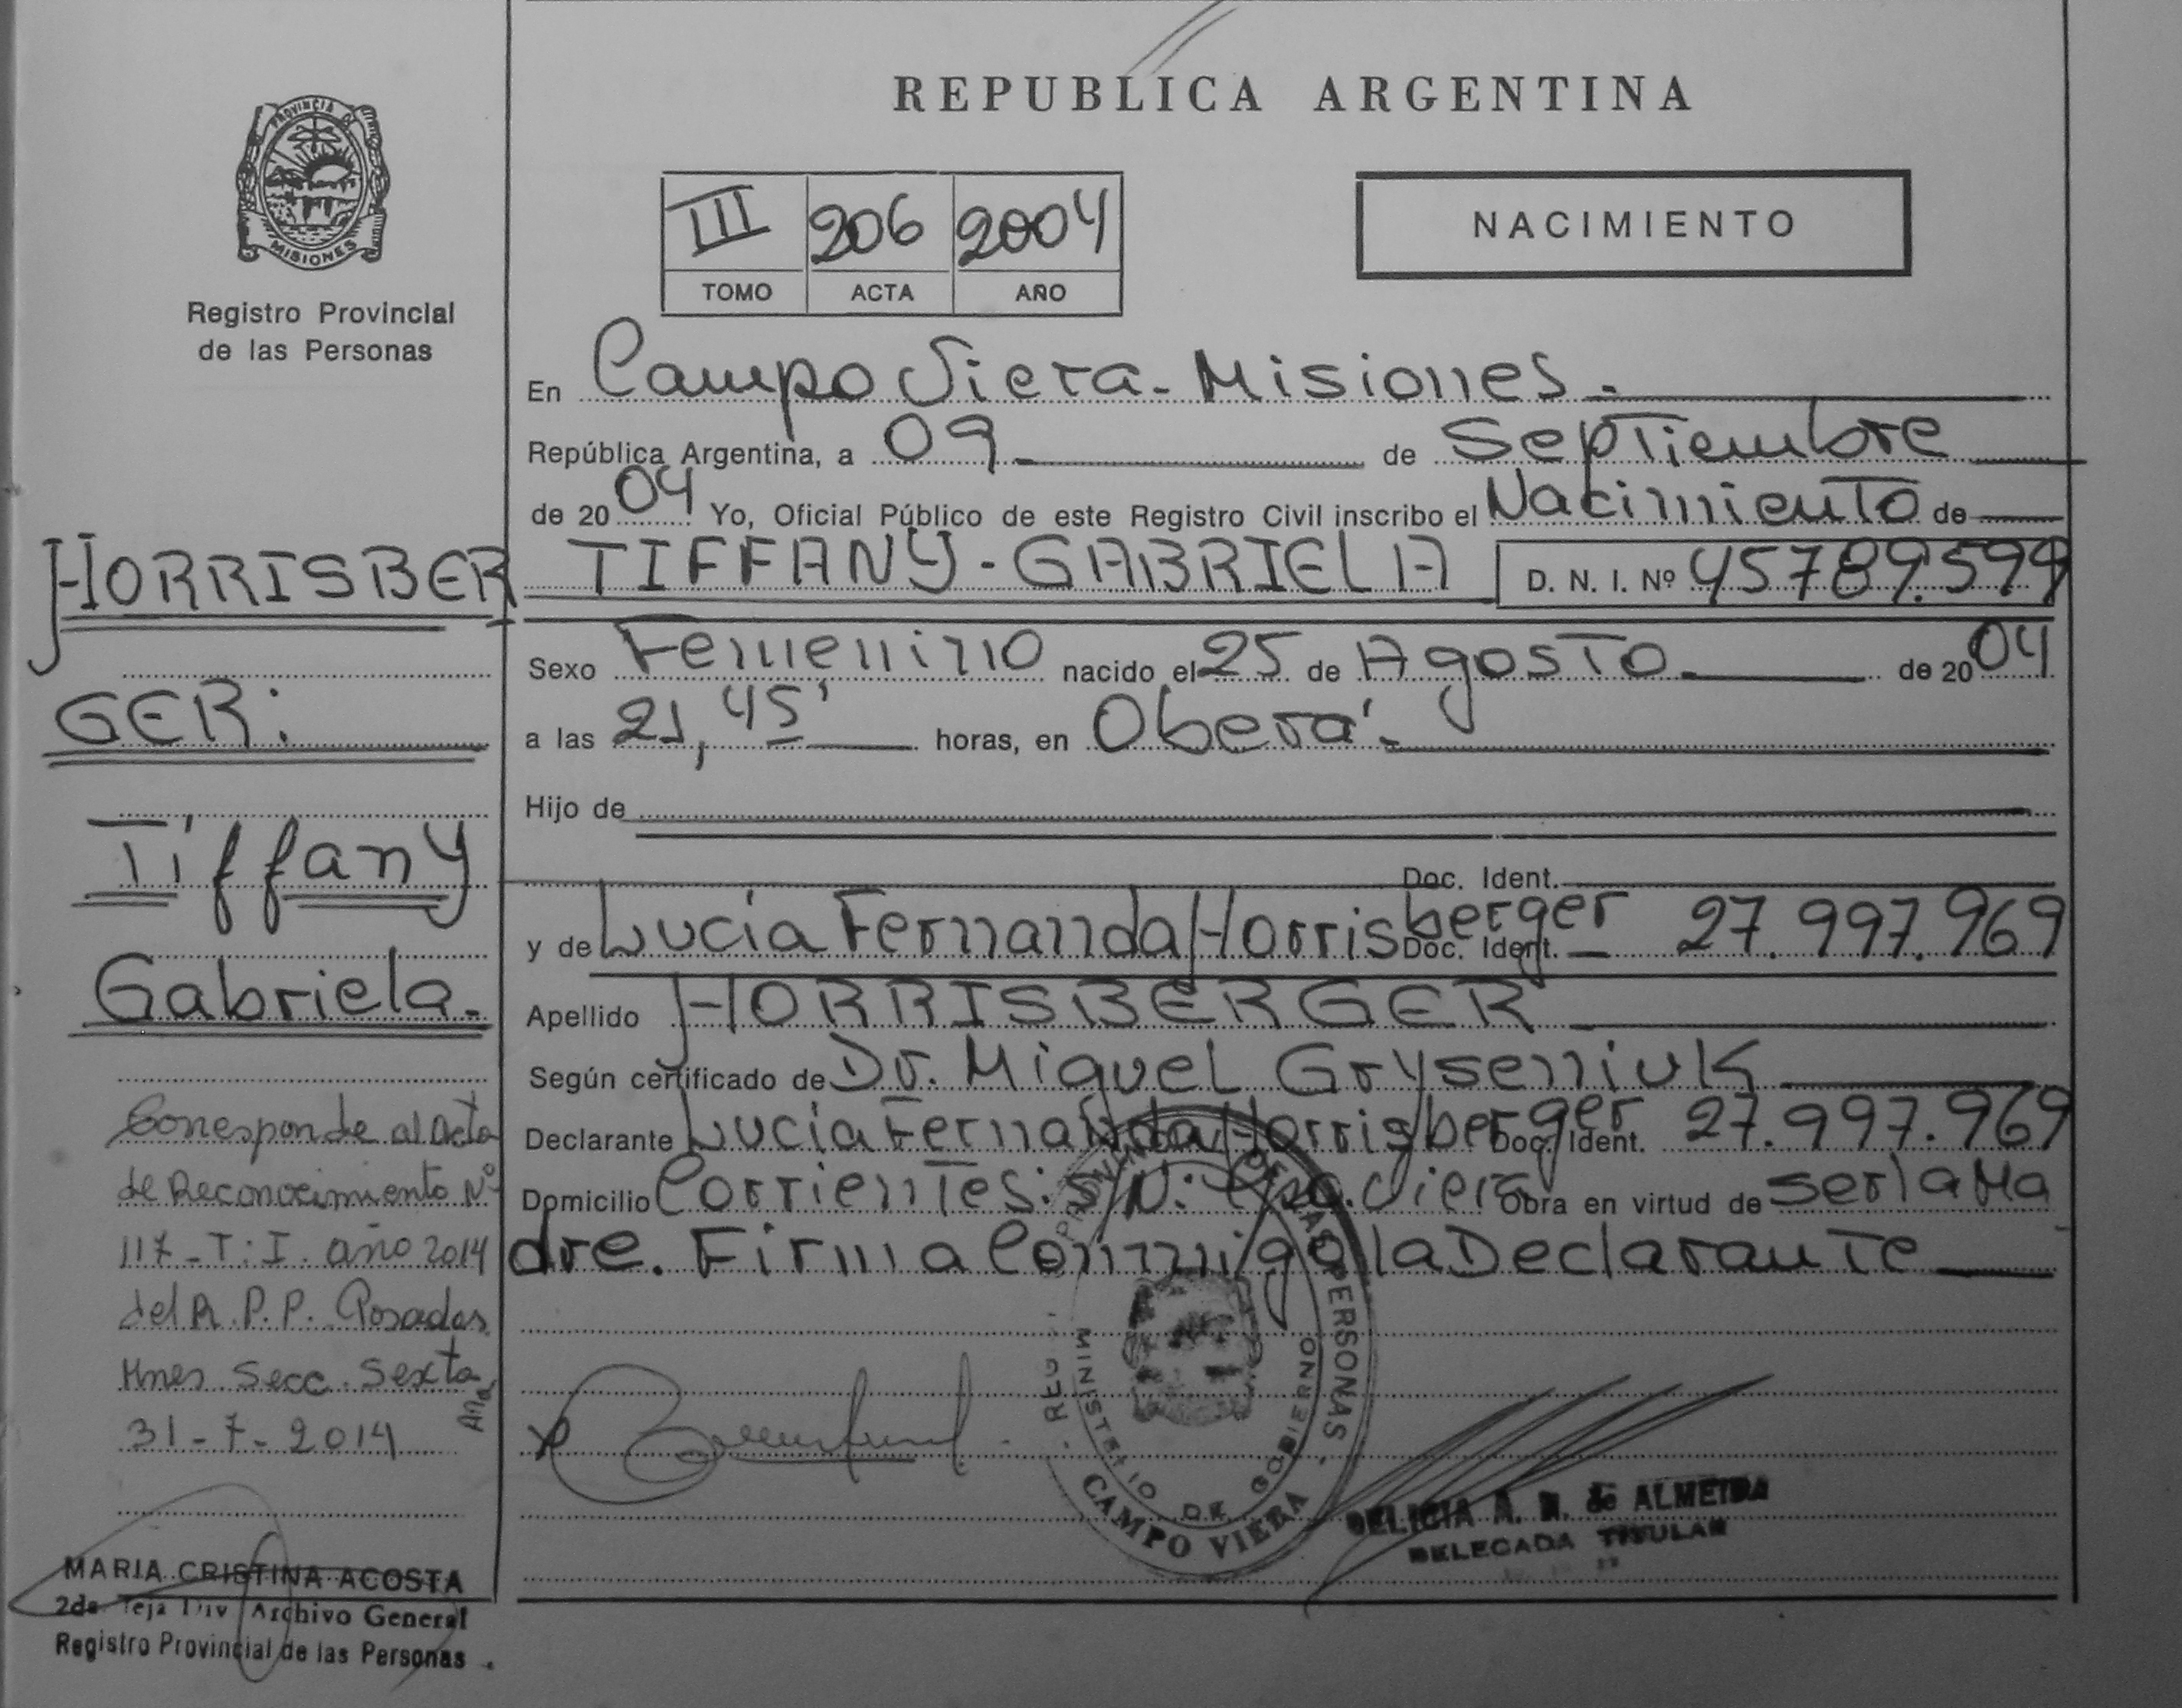 REPUBLICA ARGENTINA
PROVINCIA DE
MISIONES
Registro Provincial
de las Personas
III 206 2004
TOMO ACTA AÑO
NACIMIENTO
En Campo Viera - Misiones.
República Argentina, a 09 de Septiembre
de 2004 Yo, Oficial Público de este Registro Civil inscribo el Nacimiento de
HORRISBER
GER:
Tiffany
Gabriela.
TIFFANY - GABRIELA D. N. I. Nº 45789.599
Sexo Femenino nacido el 25 de Agosto de 2004
a las 21,45' horas, en Oberá.
Hijo de
Doc. Ident.
y de Lucía Fernanda Horrisberger Doc. Ident. 27.997.969
Apellido HORRISBERGER
Según certificado de Dr. Miguel Gryseniuk
Declarante Lucía Fernanda Horrisberger Doc. Ident. 27.997.969
Domicilio Corrientes: S/N: Cpo. Viera Obra en virtud de ser la Ma
dre. Firma Conmigo la Declarante
Corresponde al Acta
de Reconocimiento Nº
117 - T: I. año 2014
del R. P. P. Posadas
Mnes Secc. Sexta
31 - 7 - 2014
Ana
MARIA CRISTINA ACOSTA
2da. Div Archivo General
Registro Provincial de las Personas
DE LAS PERSONAS
MINISTERIO DE GOBIERNO
CAMPO VIERA
DELICIA A. de ALMEIDA
DELEGADA TITULAR